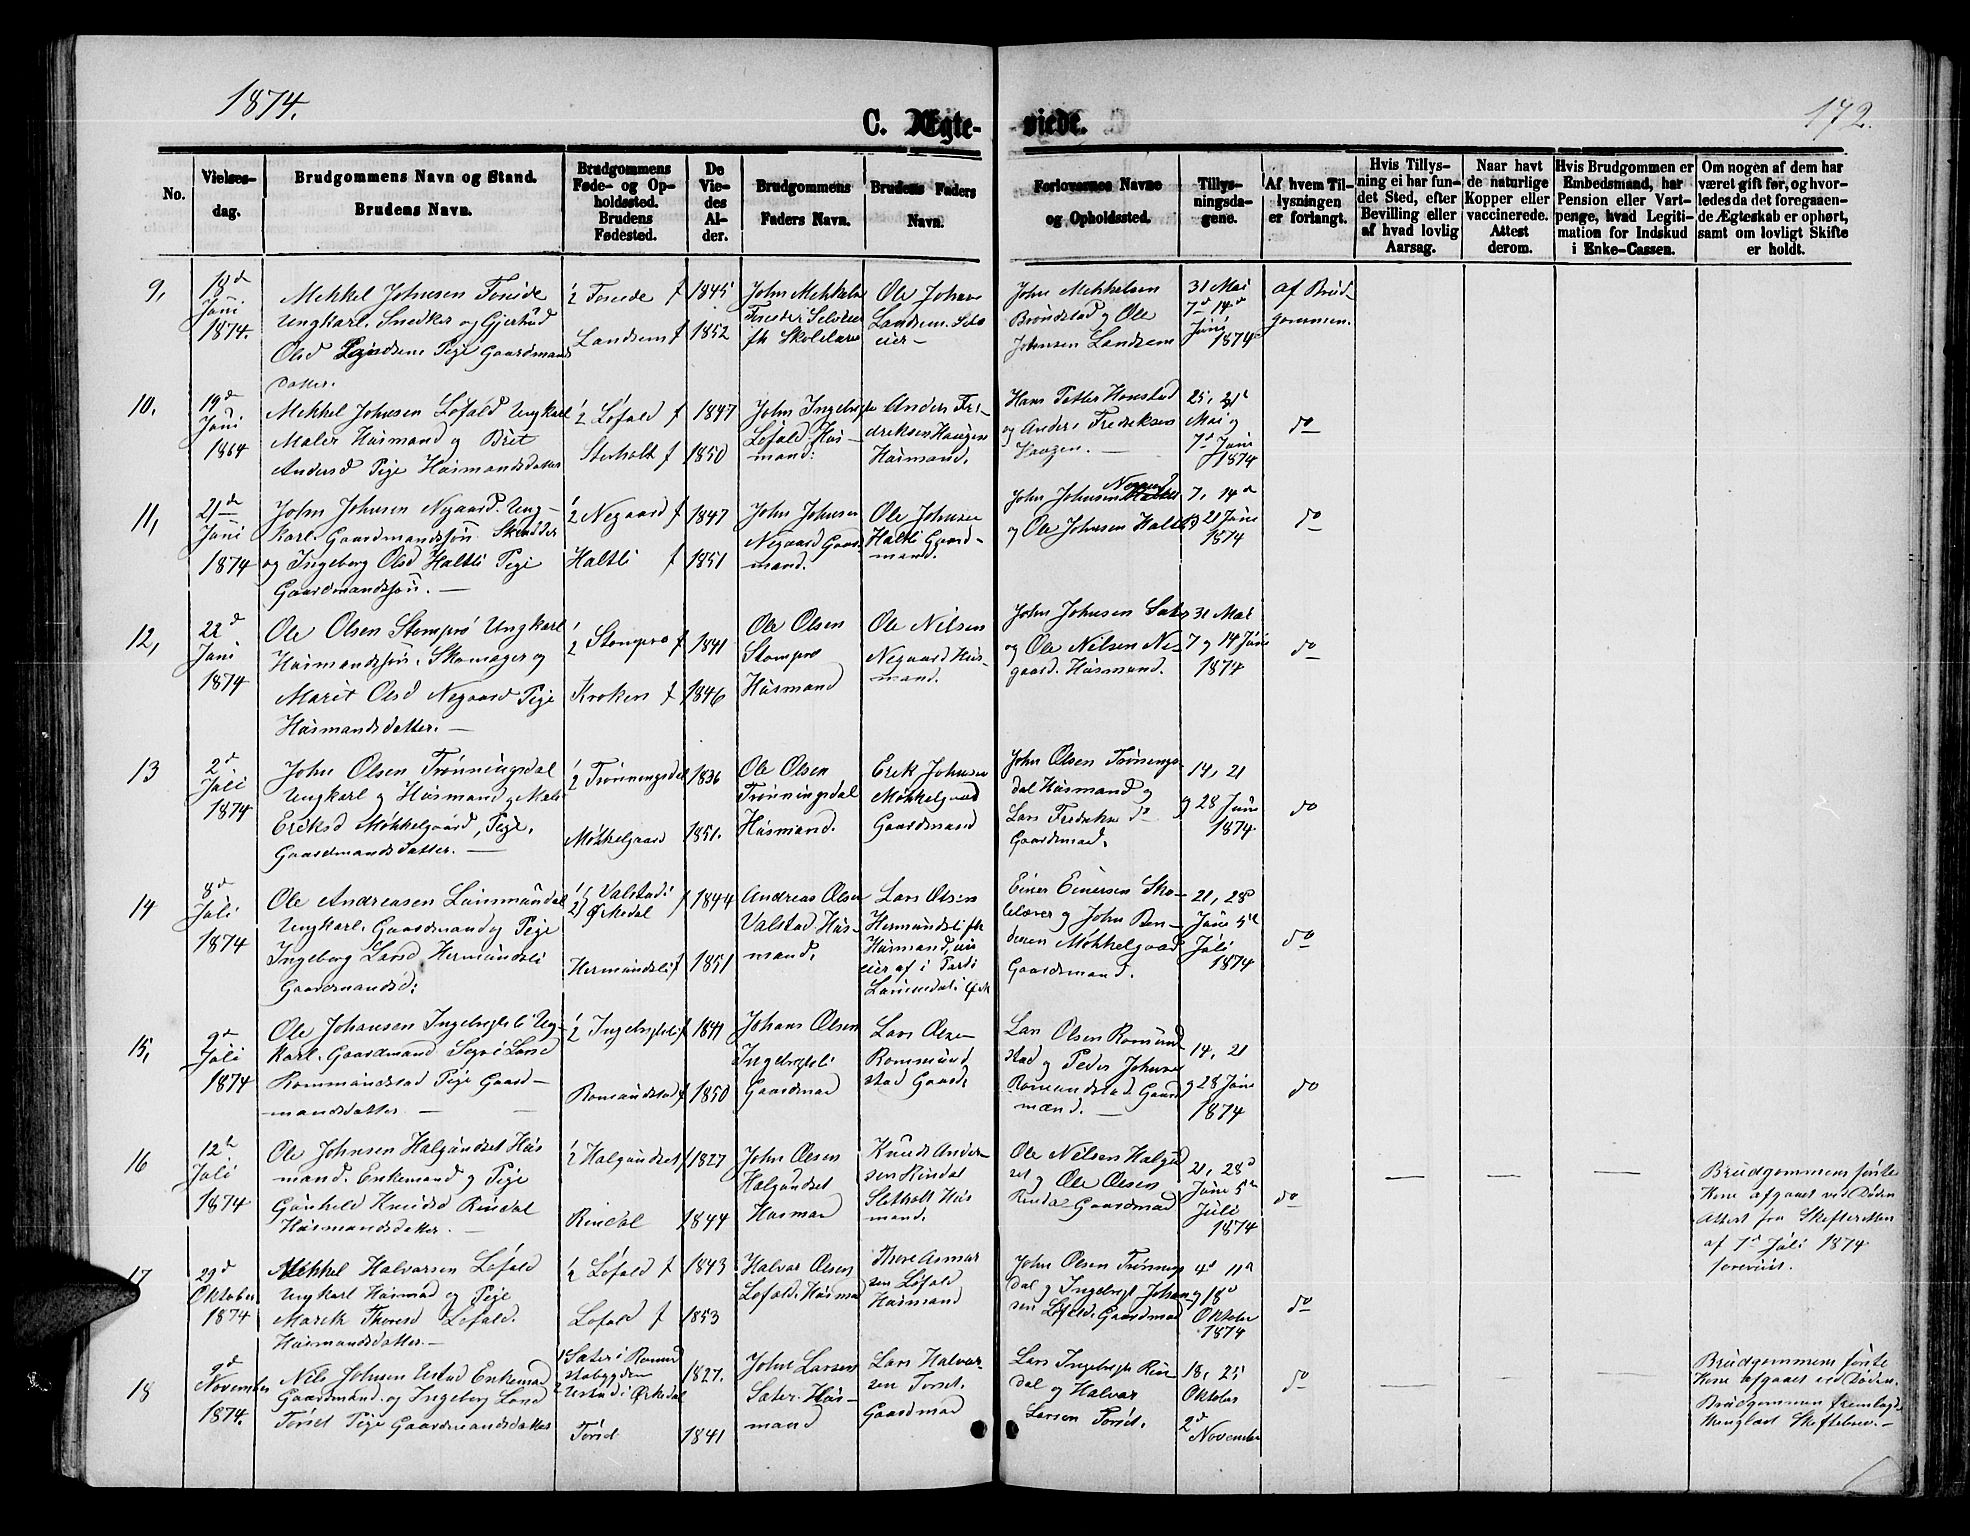 1874.
172.
C. Ægte-
viede.
No.
Vielses-
dag.
Brudgommens Navn og Stand.
Brudens Navn.
Brudgommens
Føde- og Op-
holdssted.
Brudens
Fødested.
De
Vie-
des
Al-
der.
Brudgommens
Faders Navn.
Brudens Faders
Navn.
Forlovernes Navne
og Opholdssted.
Tillys-
ningsda-
gene.
Af hvem Til-
lysningen
er forlangt.
Hvis Tillys-
ning ei har fun-
det Sted, efter
Bevilling eller
af hvad lovlig
Aarsag.
Naar havt
de naturlige
Kopper eller
vaccinerede.
Attest
derom.
Hvis Brudgommen er
Embedsmand, har
Pension eller Vart-
penge, hvad Legiti-
mation for Indskud
i Enke-Cassen.
Om nogen af dem har
været gift før, og hvor-
ledes da det foregaaen-
de Ægteskab er ophørt,
samt om lovligt Skifte
er holdt.
9,
18d
Juni
1874.
Mekkel Johnsen Foseide
Ungkarl. Snedker og Gjertrud
Olsd Pige Gaardmands
datter.
1/2 Foseide f
Landsem f
1845
1852
John Mekkelsen
Foseide Selveier
fh Skolelærer
Ole Johnsen
Landsem. Selv
eier -
John Mekkelsen
Brøndstad og Ole
Johnsen Landsem
31 Mai
7d 14d
Juni
1874
af Brud-
gommen.
10.
19d
Juni
1864
Mekkel Johnsen Løfald Ungkarl
Maler Husmand og Brit
Andersd Pige Husmandsdatter
1/2 Løfald f
Stenholt f
1847
1850
John Ingebrigts
Løfald. Hus-
mand.
Anders Fre-
driksen Haugen
Husmand.
Hans Petter Honstad
og Anders Fredriksen
Haugen. -
25, 31t
Mai og
7d Juni
1874
do
11,
21de
Juni
1874
John Johnsen Negaard. Ung-
karl. Gaardmandssøn Skrædder
og Ingeborg Olsd Haltli Pige
Gaardmandssøn. -
1/2 Negaard f
Haltli f
1847
1851
John Johnsen
Negaard Gaard-
mand.
Ole Johnsen
Haltli Gaard-
mand.
John Johnsen Negaard
og Ole Johnsen Haltli
7, 14d
og 21 Juni
1874
do
12,
22d
Juni
1874
Ole Olsen Stomprø Ungkarl
Husmandssøn. Skomager og
Marit Olsd Negaard Pige
Husmandsdatter. -
1/2 Stomprø f
Kroken f
1841
1846
Ole Olsen
Stomprø
Husmand
Ole Nilsen
Negaard Hus-
mand.
John Johnsen Sæter
og Ole Nilsen Ne-
gaard. Husmand.
31 Mai
7 og 14 Juni
1874
do
13
2d
Juli
1874
John Olsen Trønningsdal
Ungkarl og Husmand og Mali
Eriksd Møkkelgaard, Pige,
Gaardmandsdatter. -
1/2 Trønningsdal
Møkkelgaard
1836
1851.
Ole Olsen
Trønningsdal
Husmand.
Erik Johnsen
Møkkelgaard
Gaardmand
John Olsen Trønnings-
dal Husmand og
Lars Fredriksen do
Gaardmand.
14, 21
og 28 Juni
1874.
do
14
8d
Juli
1874
Ole Andreasen Lunmundal
Ungkarl. Gaardmand og Pige
Ingeborg Larsd Hermundsli
Gaardmandsd:
1/2 Valstad i
Ørkedal f
Hermundsli f
1844
1851
Andreas Olsen
Valstad. Hus-
mand.
Lars Olsen
Hermundsli fh
Husmand, nu
eier af i Part i
Lunmdal i Ørk
Einer Einersen Sko-
lelærer og John Ben-
dixen Møkkelgaard
Gaardmand.
21, 28d
Juni 5te
Juli
1874
do
15,
9d
Juli
1874
Ole Johansen Ingebrigtsli Ung-
karl. Gaardmand Sigri Larsd
Rommundstad Pige Gaard-
mandsdatter. -
1/2 Ingebrigtsli f
Romundstad f
1841
1850
Johans Olsen
Ingebrigtsli
Gaardmand
Lars Olsen
Rommund-
stad Gaard.
Lars Olsen Romund
stad og Peder Johnsen
Romundstad. Gaard
mænd. -
14, 21
og 28 Juni
1874
do
16
12te
Juli
1874
Ole Johnsen Halgundset Hus
mand. Enkemand og Pige
Gunhild Knudsd Rindal
Husmandsdatter. -
1/2 Halgundset f
Rindal
1827
1844
John Olsen
Halgundset
Husmand
Knud Ander-
sen Rindal
Sletholt Hus
mand.
Ole Nilsen Halgund
set og Ole Olsen
Rindal Gaardmænd
21, 28d
Juni 5te
Juli
1874
do
Brudgommens første
Kone afgaaet ved Døden
Attest fra Skifteretten
af 7d Juli 1874
forevist.
17
29d
Oktober
1874
Mekkel Halvorsen Løfald
Ungkarl Husmand og Pige
Marit Thoresd Løfald.
Husmandsdatter. -
1/2 Løfald f
Løfald f
1843
1853
Halvor Olsen
Løfald. Husmand
Thore Asmar
sen Løfald
Husmand
John Olsen Trønnings
dal og Ingebrigt Johan-
sen Løfald. Gaardmænd
4d 11te
og 18d
Oktober
1874
do
18
9d
November
1874.
Nils Johnsen Ustad Enkemand
Gaardmand. og Ingeborg Larsd
Torset Pige Gaardmandsdatter
1 Sæter i Romund
stadbygden
2 Ustad i Ørkedal
Torset
1827.
1841
John Larsen
Sæter. Hus-
mand
Lars Halvor-
sen Torset.
Gaardmand
Lars Ingebrigts Rin
dal og Halvor
Larsen Torset.
18, 25
Oktober
2d
November
do
Brudgommens første
Kone afgaaet ved Døden.
Brudgommen fremlagde
Skiftebrev. -